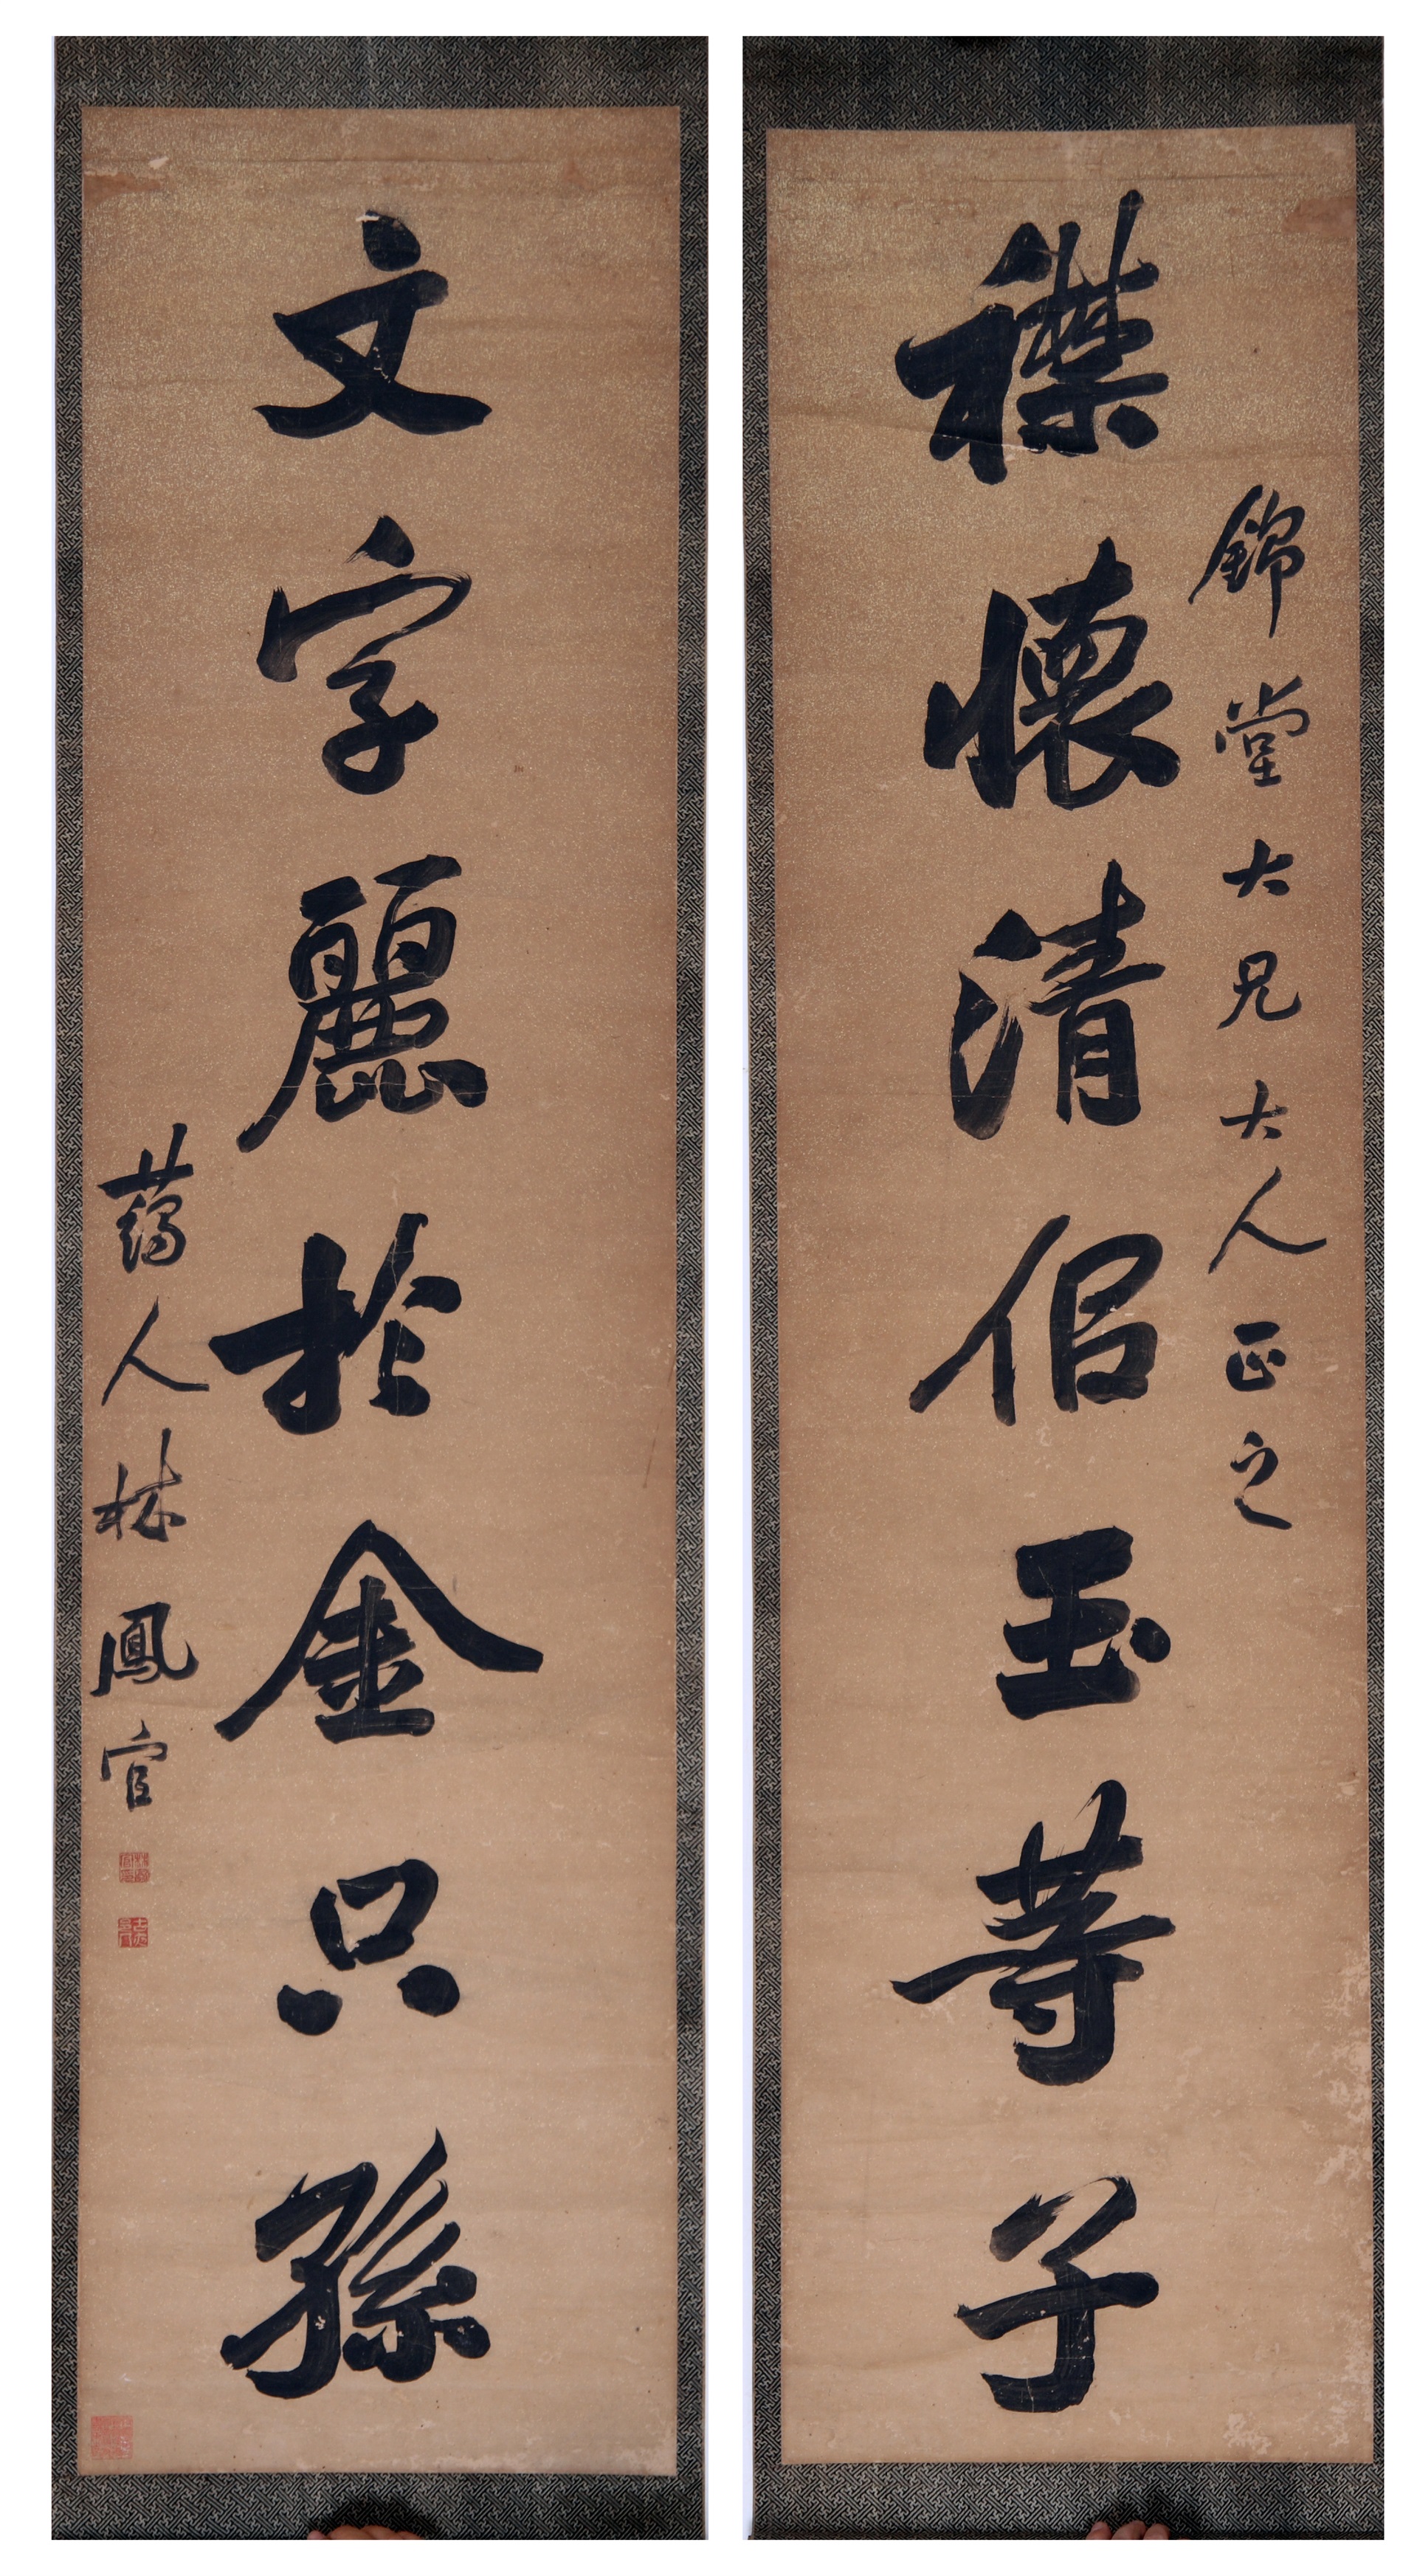 錦堂大兄大人正之
襟懷清佀玉等子
文字麗於金只孫
藹人林鳳官